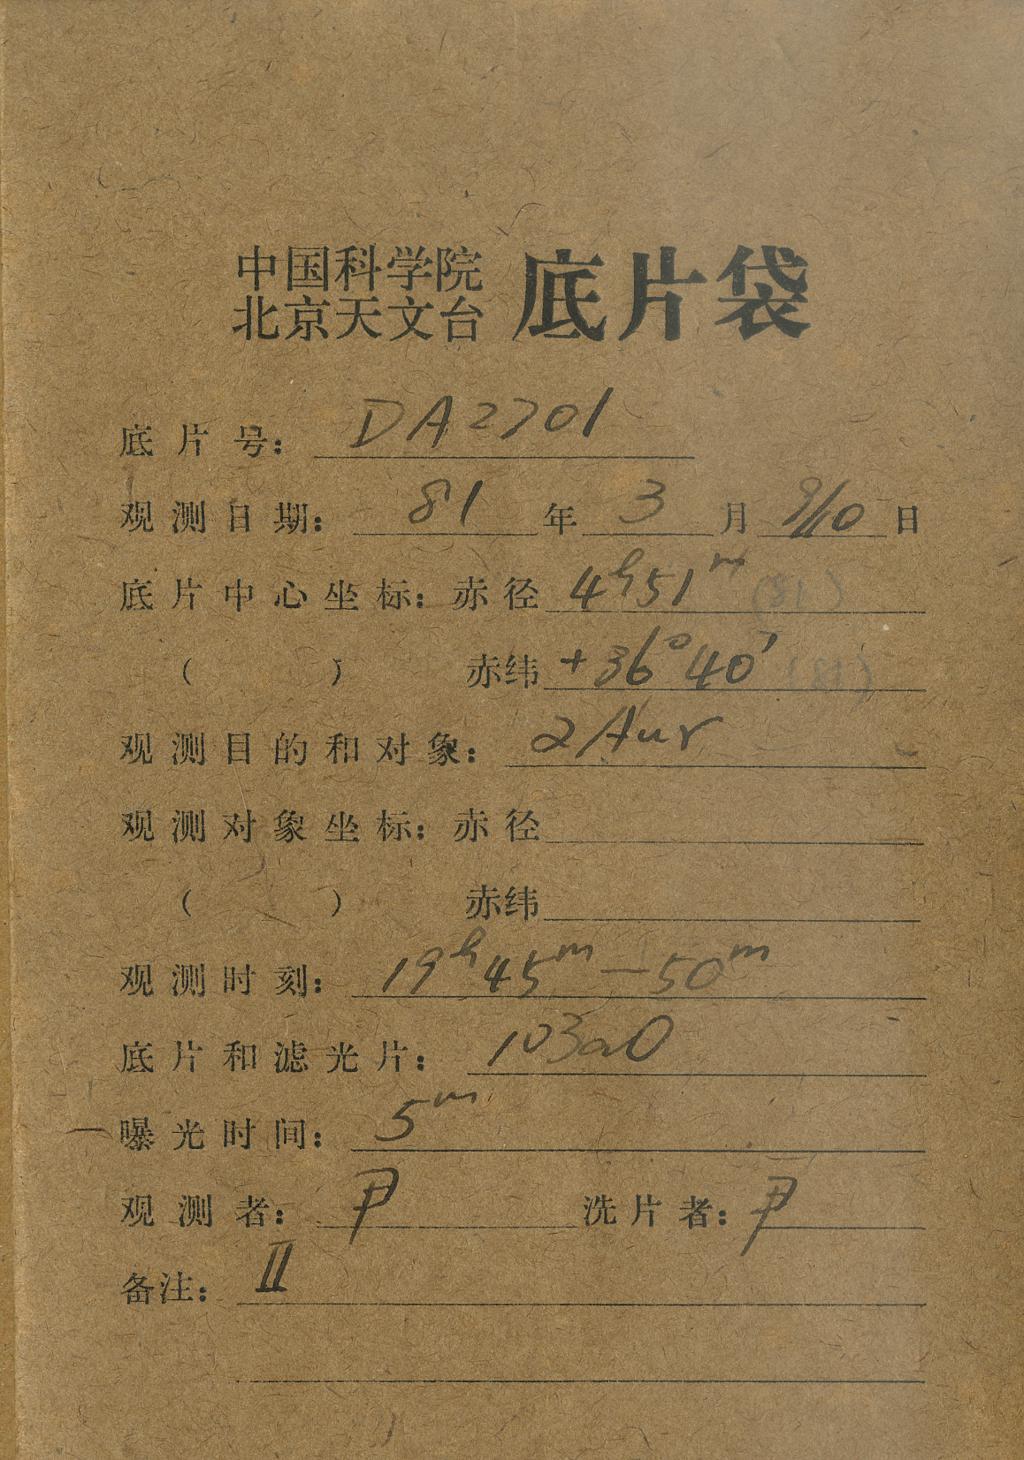 中国科学院
北京天文台 底片袋
底片号: DA2701
观测日期: 81年3月9/10日
底片中心坐标: 赤径 4ʰ51ᵐ (81)
( ) 赤纬 +36°40′ (81)
观测目的和对象: 2 Aur
观测对象坐标: 赤径
( ) 赤纬
观测时刻: 19ʰ45ᵐ—50ᵐ
底片和滤光片: 103aO
曝光时间: 5ᵐ
观测者: 尹 洗片者: 尹
备注: II